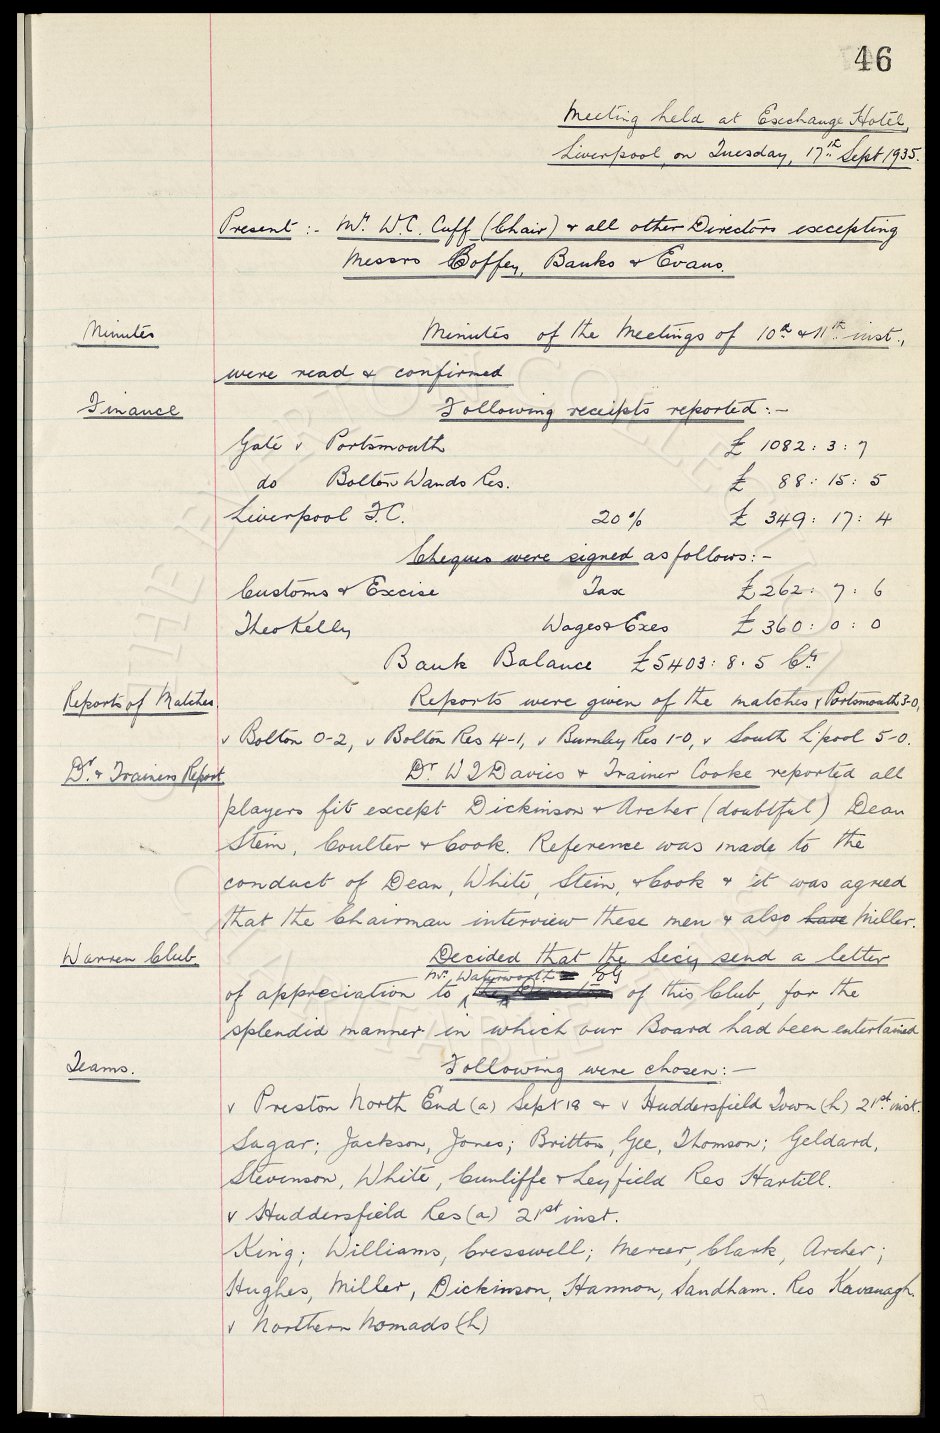 46
Meeting held at Exchange Hotel,
Liverpool, on Tuesday, 17th Sept 1935.
Present :- Mr W.C. Cuff (Chair) & all other Directors excepting
Messrs Coffey, Banks & Evans.
Minutes Minutes of the Meetings of 10th & 11th inst.,
were read & confirmed
Finance Following receipts reported:-
Gate v Portsmouth £ 1082 : 3 : 7
do Bolton Wands Res. £ 88 : 15 : 5
Liverpool F.C. 20% £ 349 : 17 : 4
Cheques were signed as follows:-
Customs & Excise Tax £262 : 7 : 6
Theo Kelly Wages & Exes £360 : 0 : 0
Bank Balance £5403 : 8 . 5 Cr
Reports of Matches. Reports were given of the matches v Portsmouth 3-0,
v Bolton 0-2, v Bolton Res 4-1, v Burnley Res 1-0, v South L'pool 5-0.
Dr. & Trainers Report Dr. W J Davies & Trainer Cooke reported all
players fit except Dickinson & Archer (doubtful) Dean
Stein, Coulter & Cook. Reference was made to the
conduct of Dean, White, Stein, & Cook & it was agreed
that the Chairman interview these men & also have Miller.
Warren Club. Decided that the Secy send a letter
Mr. Waterworth
of appreciation to the Directors of this Club, for the
splendid manner in which our Board had been entertained
Teams. Following were chosen:-
v Preston North End (a) Sept 18 & v Huddersfield Town (h) 21st inst.
Sagar; Jackson, Jones; Britton, Gee, Thomson; Geldard,
Stevenson, White, Cunliffe & Leyfield Res Hartill.
v Huddersfield Res (a) 21st inst.
King; Williams, Cresswell; Mercer, Clark, Archer;
Hughes, Miller, Dickinson, Hannon, Sandham. Res Kavanagh.
v Northern Nomads (h)
THE EVERTON COLLECTION